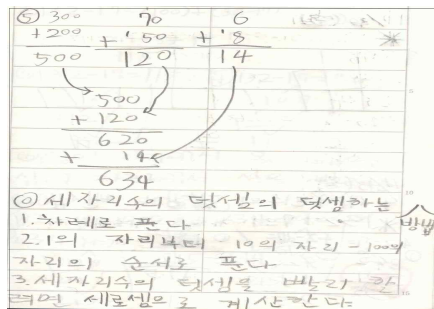 ⑤ 300 70 6
+200 + 50 + 8
500 120 14
500
+ 120
620
+ 14
634
◎ 세자리수의 덧셈의 덧셈하는 방법
1. 차례로 푼다
2. 1의 자리부터 - 10의 자리 - 100의
자리의 순서로 푼다
3. 세자리수의 덧셈을 빨리 할
려면 세로셈으로 계산한다.